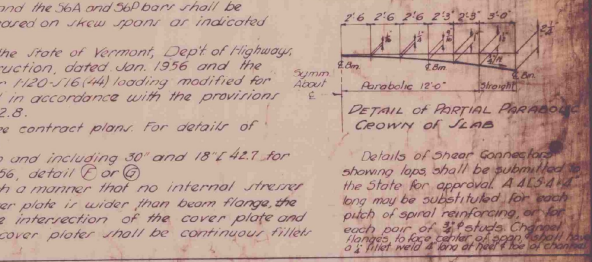 and the S6A and S6P bars shall be
based on skew spans as indicated
the State of Vermont, Dep't of Highways,
ruction, dated Jan. 1956 and the
H20-S16(44) loading modified for
in accordance with the provisions
2.8.
e contract plans. For details of
and including 30" and 18" [ 42.7 for
56, detail F or G
h a manner that no internal stresses
er plate is wider than beam flange, the
e intersection of the cover plate and
cover plates shall be continuous fillets
2'-6 2'-6 2'-6 2'-3" 2'-3" 3'-0"
Symm.
About
℄
℄ Bm. ℄ Bm. ℄ Bm.
Parabolic 12'-0" Straight
DETAIL of PARTIAL PARABOLIC
CROWN of SLAB
Details of Shear Connectors
showing laps, shall be submitted to
the State for approval. A
long may be substituted for each
pitch of spiral reinforcing, or for
each pair of studs. Channel
flanges to face center of span, shall have
a fillet weld 4" long at heel & toe of channel